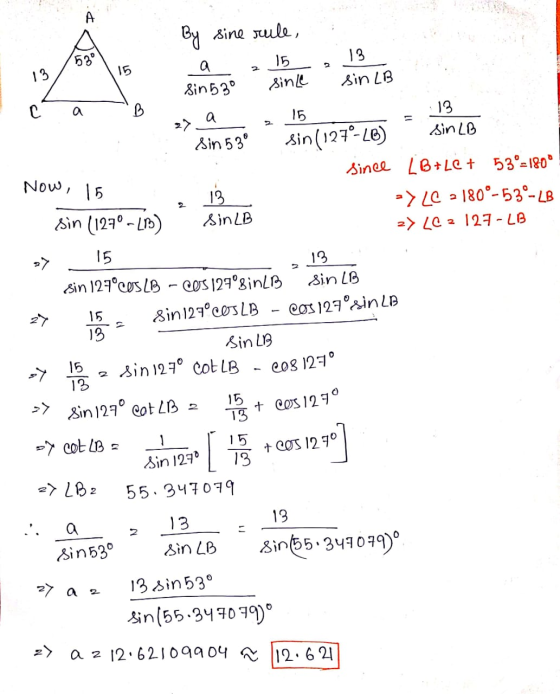 A
53°
13
15
C
a
B
By sine rule,
a/sin53° = 15/sin∠C = 13/sin∠B
=> a/sin53° = 15/sin(127°-∠B) = 13/sin∠B
since ∠B+∠C+ 53°=180°
=> ∠C = 180°-53°-∠B
=> ∠C = 127-∠B
Now, 15/sin(127°-∠B) = 13/sin∠B
=> 15/sin127°cos∠B - cos127°sin∠B = 13/sin∠B
=> 15/13 = sin127°cos∠B - cos127°sin∠B/sin∠B
=> 15/13 = sin127° cot∠B - cos127°
=> sin127° cot∠B = 15/13 + cos127°
=> cot∠B = 1/sin127° [15/13 + cos127°]
=> ∠B = 55.347079
∴ a/sin53° = 13/sin∠B = 13/sin(55.347079)°
=> a = 13 sin53°/sin(55.347079)°
=> a = 12.62109904 ≈ 12.621